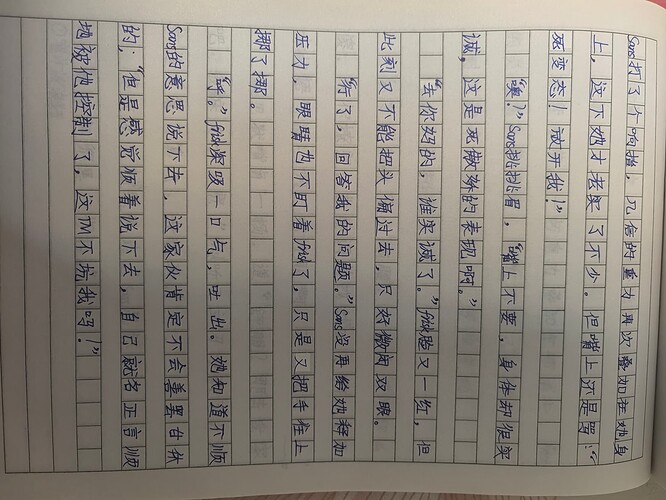 Sans打了个响指，几倍的重力再次叠加在她身
上，这下她才老实了不少。但嘴上还是骂：“
死变态！放开我！”
“噢？”Sans挑挑眉，“嘴上不要，身体却很实
诚，这是死傲娇的表现啊。”
“去你妈的，谁实诚了。”frisk脸又一红，但
此刻又不能把头偏过去，只好微闭双眼。
“行了，回答我的问题。”Sans没再给她释加
压力，眼睛也不盯着frisk了，只是又把手往上
挪了挪。
frisk深吸一口气，吐出。她知道不顺
Sans的意思说下去，这家伙肯定不会善罢甘休
的；“但是感觉顺着说下去，自己就名正言顺
地被他控制了，这TM不坑我吗！”